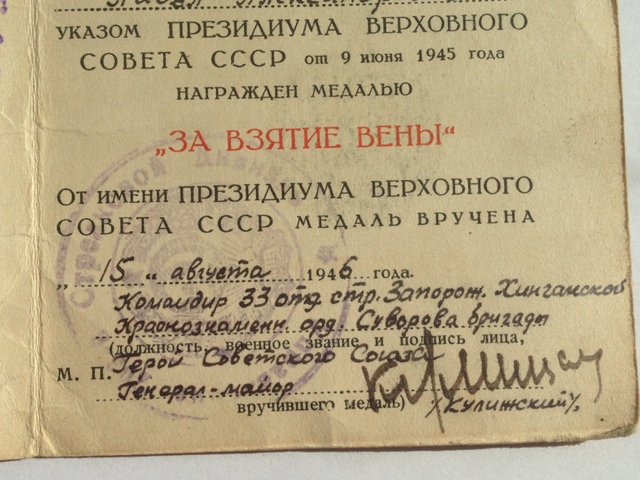 УКАЗОМ ПРЕЗИДИУМА ВЕРХОВНОГО
СОВЕТА СССР от 9 июня 1945 года
НАГРАЖДЕН МЕДАЛЬЮ
„ЗА ВЗЯТИЕ ВЕНЫ“
От имени ПРЕЗИДИУМА ВЕРХОВНОГО
СОВЕТА СССР МЕДАЛЬ ВРУЧЕНА
„15“ августа 1946 года.
Командир 33 отд. стр. Запорож. Хинганской
Краснознаменн. орд. Суворова бригады
(должность, военное звание и подпись лица,
Герой Советского Союза
М. П.
Генерал-майор
вручившего медаль) /Кулижский/.